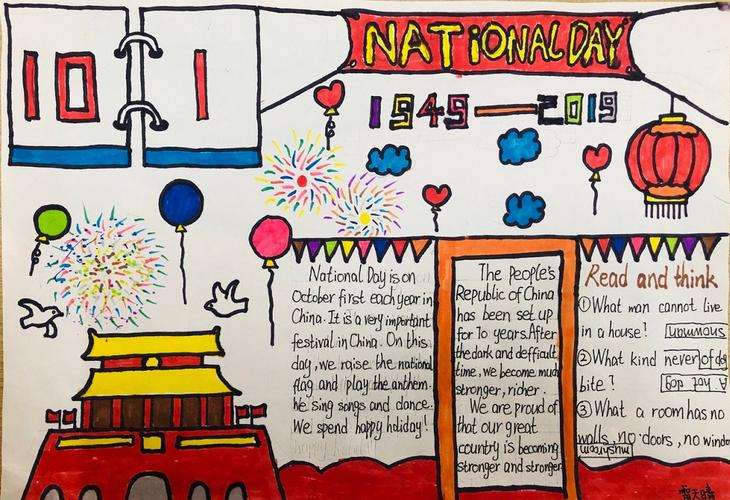 10 1
NATIONAL DAY
1949—2019
National Day is on
October first each year in
China. It is a very important
festival in China. On this
day, we raise the national
flag and play the anthem.
We sing songs and dance.
We spend happy holiday!
The People's
Republic of China
has been set up
for 70 years. After
the dark and defficult
time, we become much
stronger, richer.
We are proud of
that our great
country is becoming
stronger and stronger
Read and think
①What man cannot live
in a house! snowman
②What kind never of dog
bite? A hot dog
③What a room has no
walls, no doors, no window
mushroom